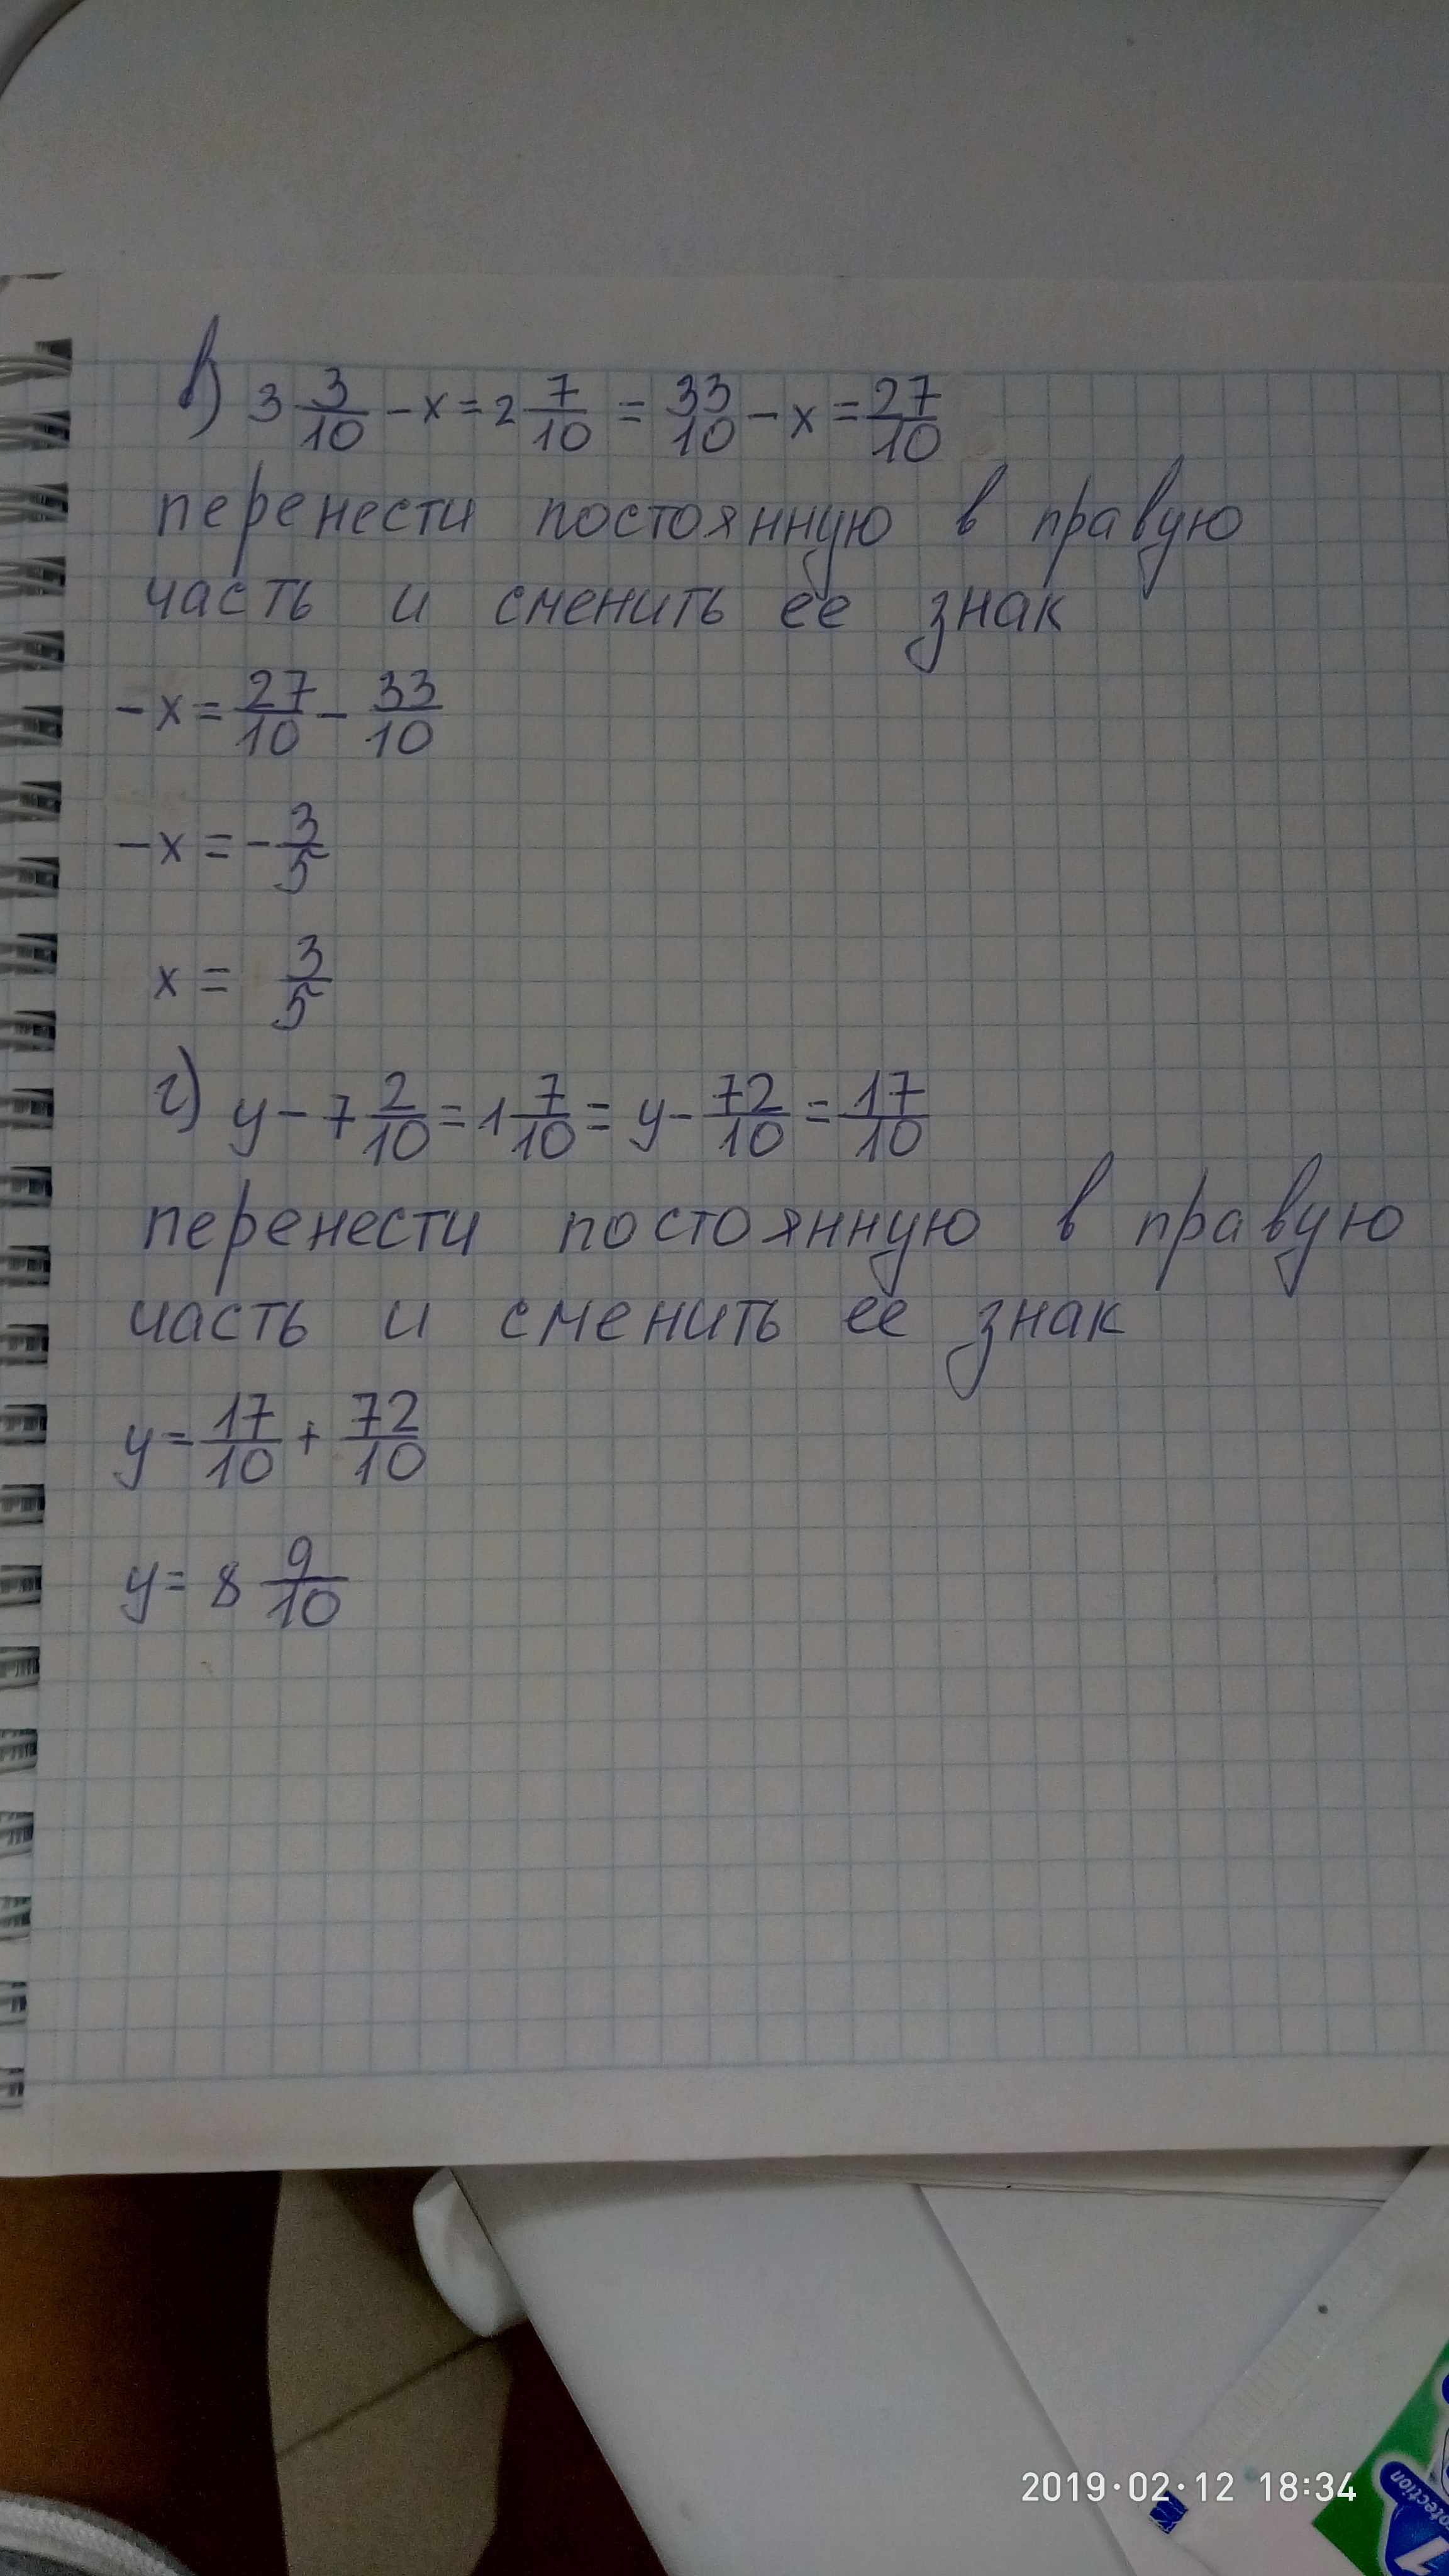 в) 3 3/10 - x = 2 7/10 = 33/10 - x = 27/10
перенести постоянную в правую
часть и сменить ее знак
-x = 27/10 - 33/10
-x = -3/5
x = 3/5
г) y - 7 2/10 = 1 7/10 = y - 72/10 = 17/10
перенести постоянную в правую
часть и сменить ее знак
y = 17/10 + 72/10
y = 8 9/10
2019·02·12 18:34